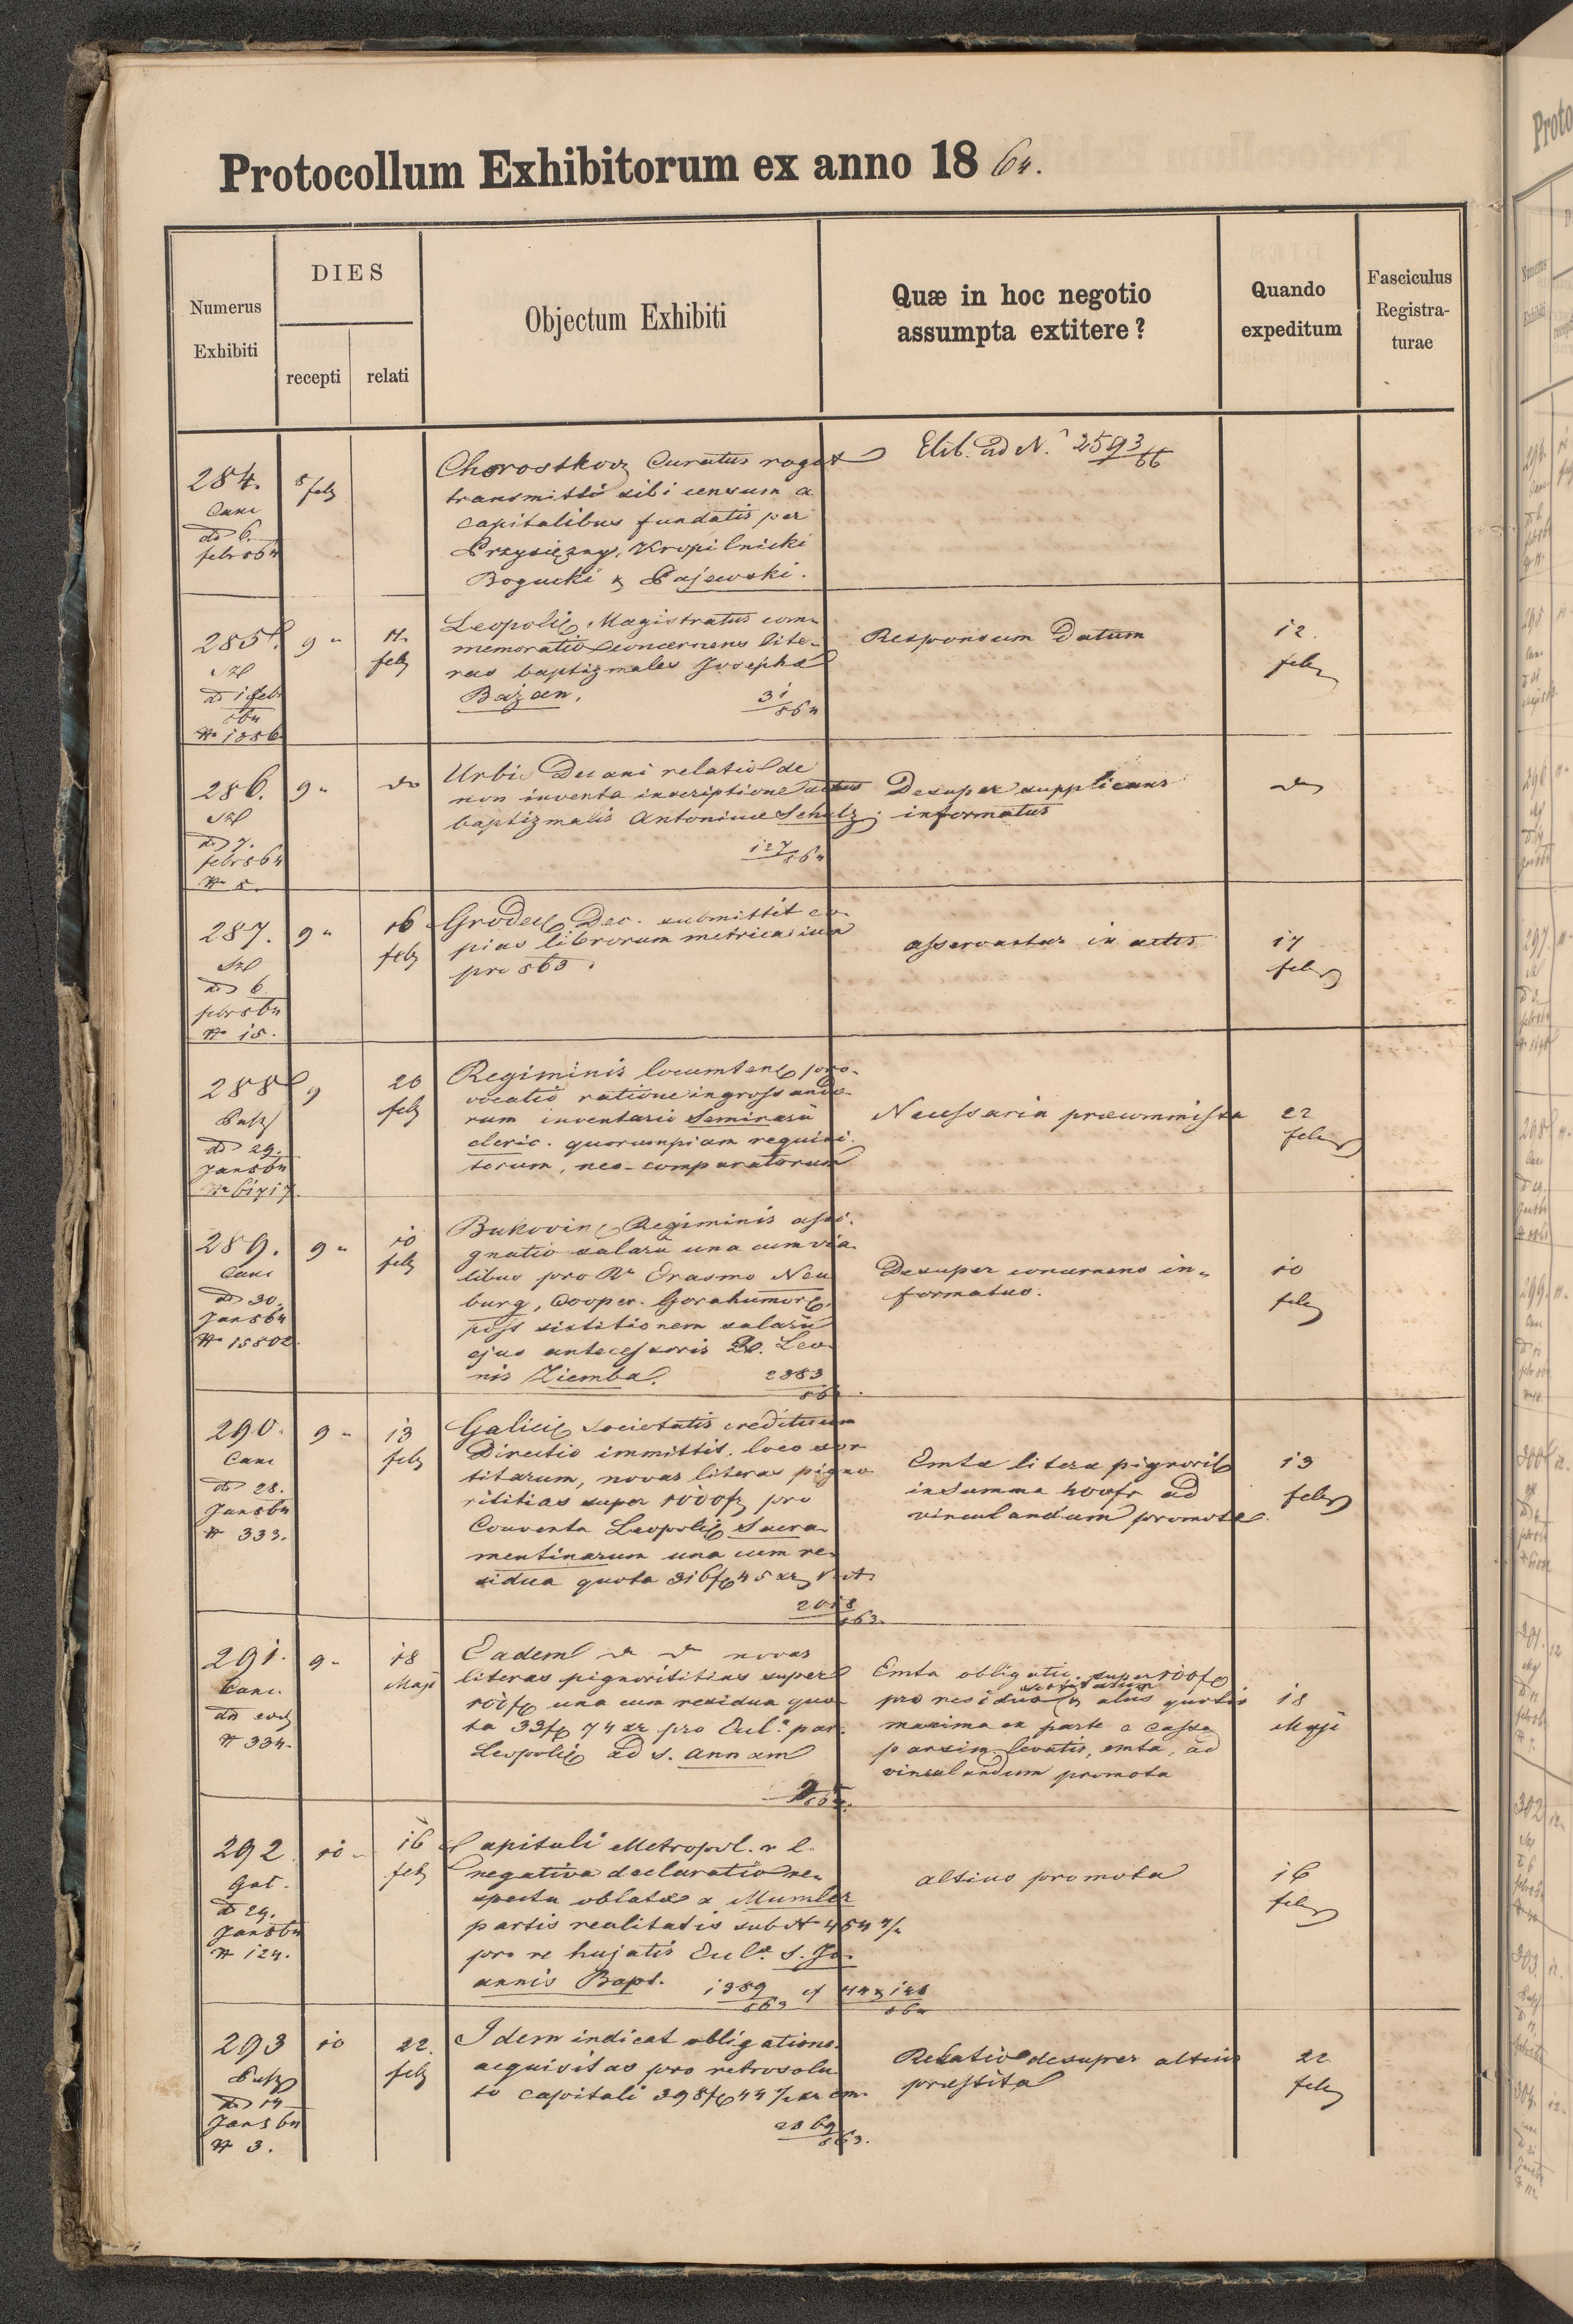 Protocollum Exhibitorum ex anno 1864.
Numerus
Exhibiti
DIES
recepti
relati
Objectum Exhibiti
Quæ in hoc negotio
assumpta extitere?
Quando
expeditum
Fasciculus
Registra-
turae
284.
Canc
dd 6.
febr 864
8 feb
Chorostkov Curatus rogat
transmitti sibi censum a
capitalibus fundatis per
Przysiężny, Kropilnicki
Bogucki & Gajewski.
Elib. ad N. 2593/66
285.
dd 1 feb
864
N 1886
9
11.
feb
Leopoli Magistratus com-
memoratio concernens lite-
ras baptizmales Josepha
Bażan.
31/864
Responsum Datum
12.
feb
286.
dd 7.
febr 864
N 8.
9
do
Urbis Decani relatio de
non inventa inscriptione actus
baptizmalis Antoninae Schulz.
127/864
Desuper supplicans
informatus
do
287.
dd 6.
febr 864
N 15.
9
16
feb
Grodec Dec. submittit co-
pias librorum metricalium
pro 863.
asservantur in actis
17
feb
288
dd 29.
Jan 864
N 61717.
9
20
feb
Regiminis locumten pro-
vocatio ratione ingrossando-
rum inventario Seminarii
cleric. quorumpiam requisi-
torum, neo-comparatorum
Necessaria praeummissa
22
feb
289.
Canc
dd 30.
Jan 864
N 15802.
9
10
feb
Bukovin Regiminis assi-
gnatio salarii una cum via-
libus pro R Erasmo Neu
burg, Cooper. Gorahumor
post sistitionem salarii
ejus antecessoris D. Leo-
nis Ziemba.
2383
Desuper concernens in-
formatus.
10
feb
290.
Canc
dd 28.
Jan 864
N 333.
9
13
feb
Galici societatis credituum
Directio immittit, loco sor-
titarum, novas literas pigno-
rititias super 1000f pro
Conventu Leopoli Sacra-
mentinarum una cum re-
sidua quota 316f 45 xr
2018/863.
Emta litera pignorit
in summa 400fr ad
vinculandum promota.
13
feb
291.
Canc.
dd eod
N 334.
9
18
Maji
Eadem do do novas
literas pignorititias super
100f una cum residua quo-
ta 33f 74 xr pro Eccl. par.
Leopoli ad S. Annam
Emta obligatio super 100f
pro residua & aliis quotis
maxima ex parte e cassa
parsim levatis, emta, ad
vinculandum promota
18
Maji
292.
Gat.
dd 29.
Jan 864
N 124.
10
16
feb
Capituli Metropol. r. l.
negativa declaratio re-
spectu oblatae a Mumler
partis realitatis sub N 454 4/4
pro re hujatis Eccl. S. Jo-
annis Bapt.
1389/863
altius promota
16
feb
293
dd 14
Jan 864
N 3.
10
22.
feb
Idem indicat obligationes
acquisitas pro retrosolu-
to capitali 398f 44 1/2 xr cm.
2069/863.
Relatio desuper altius
praestita
22
feb